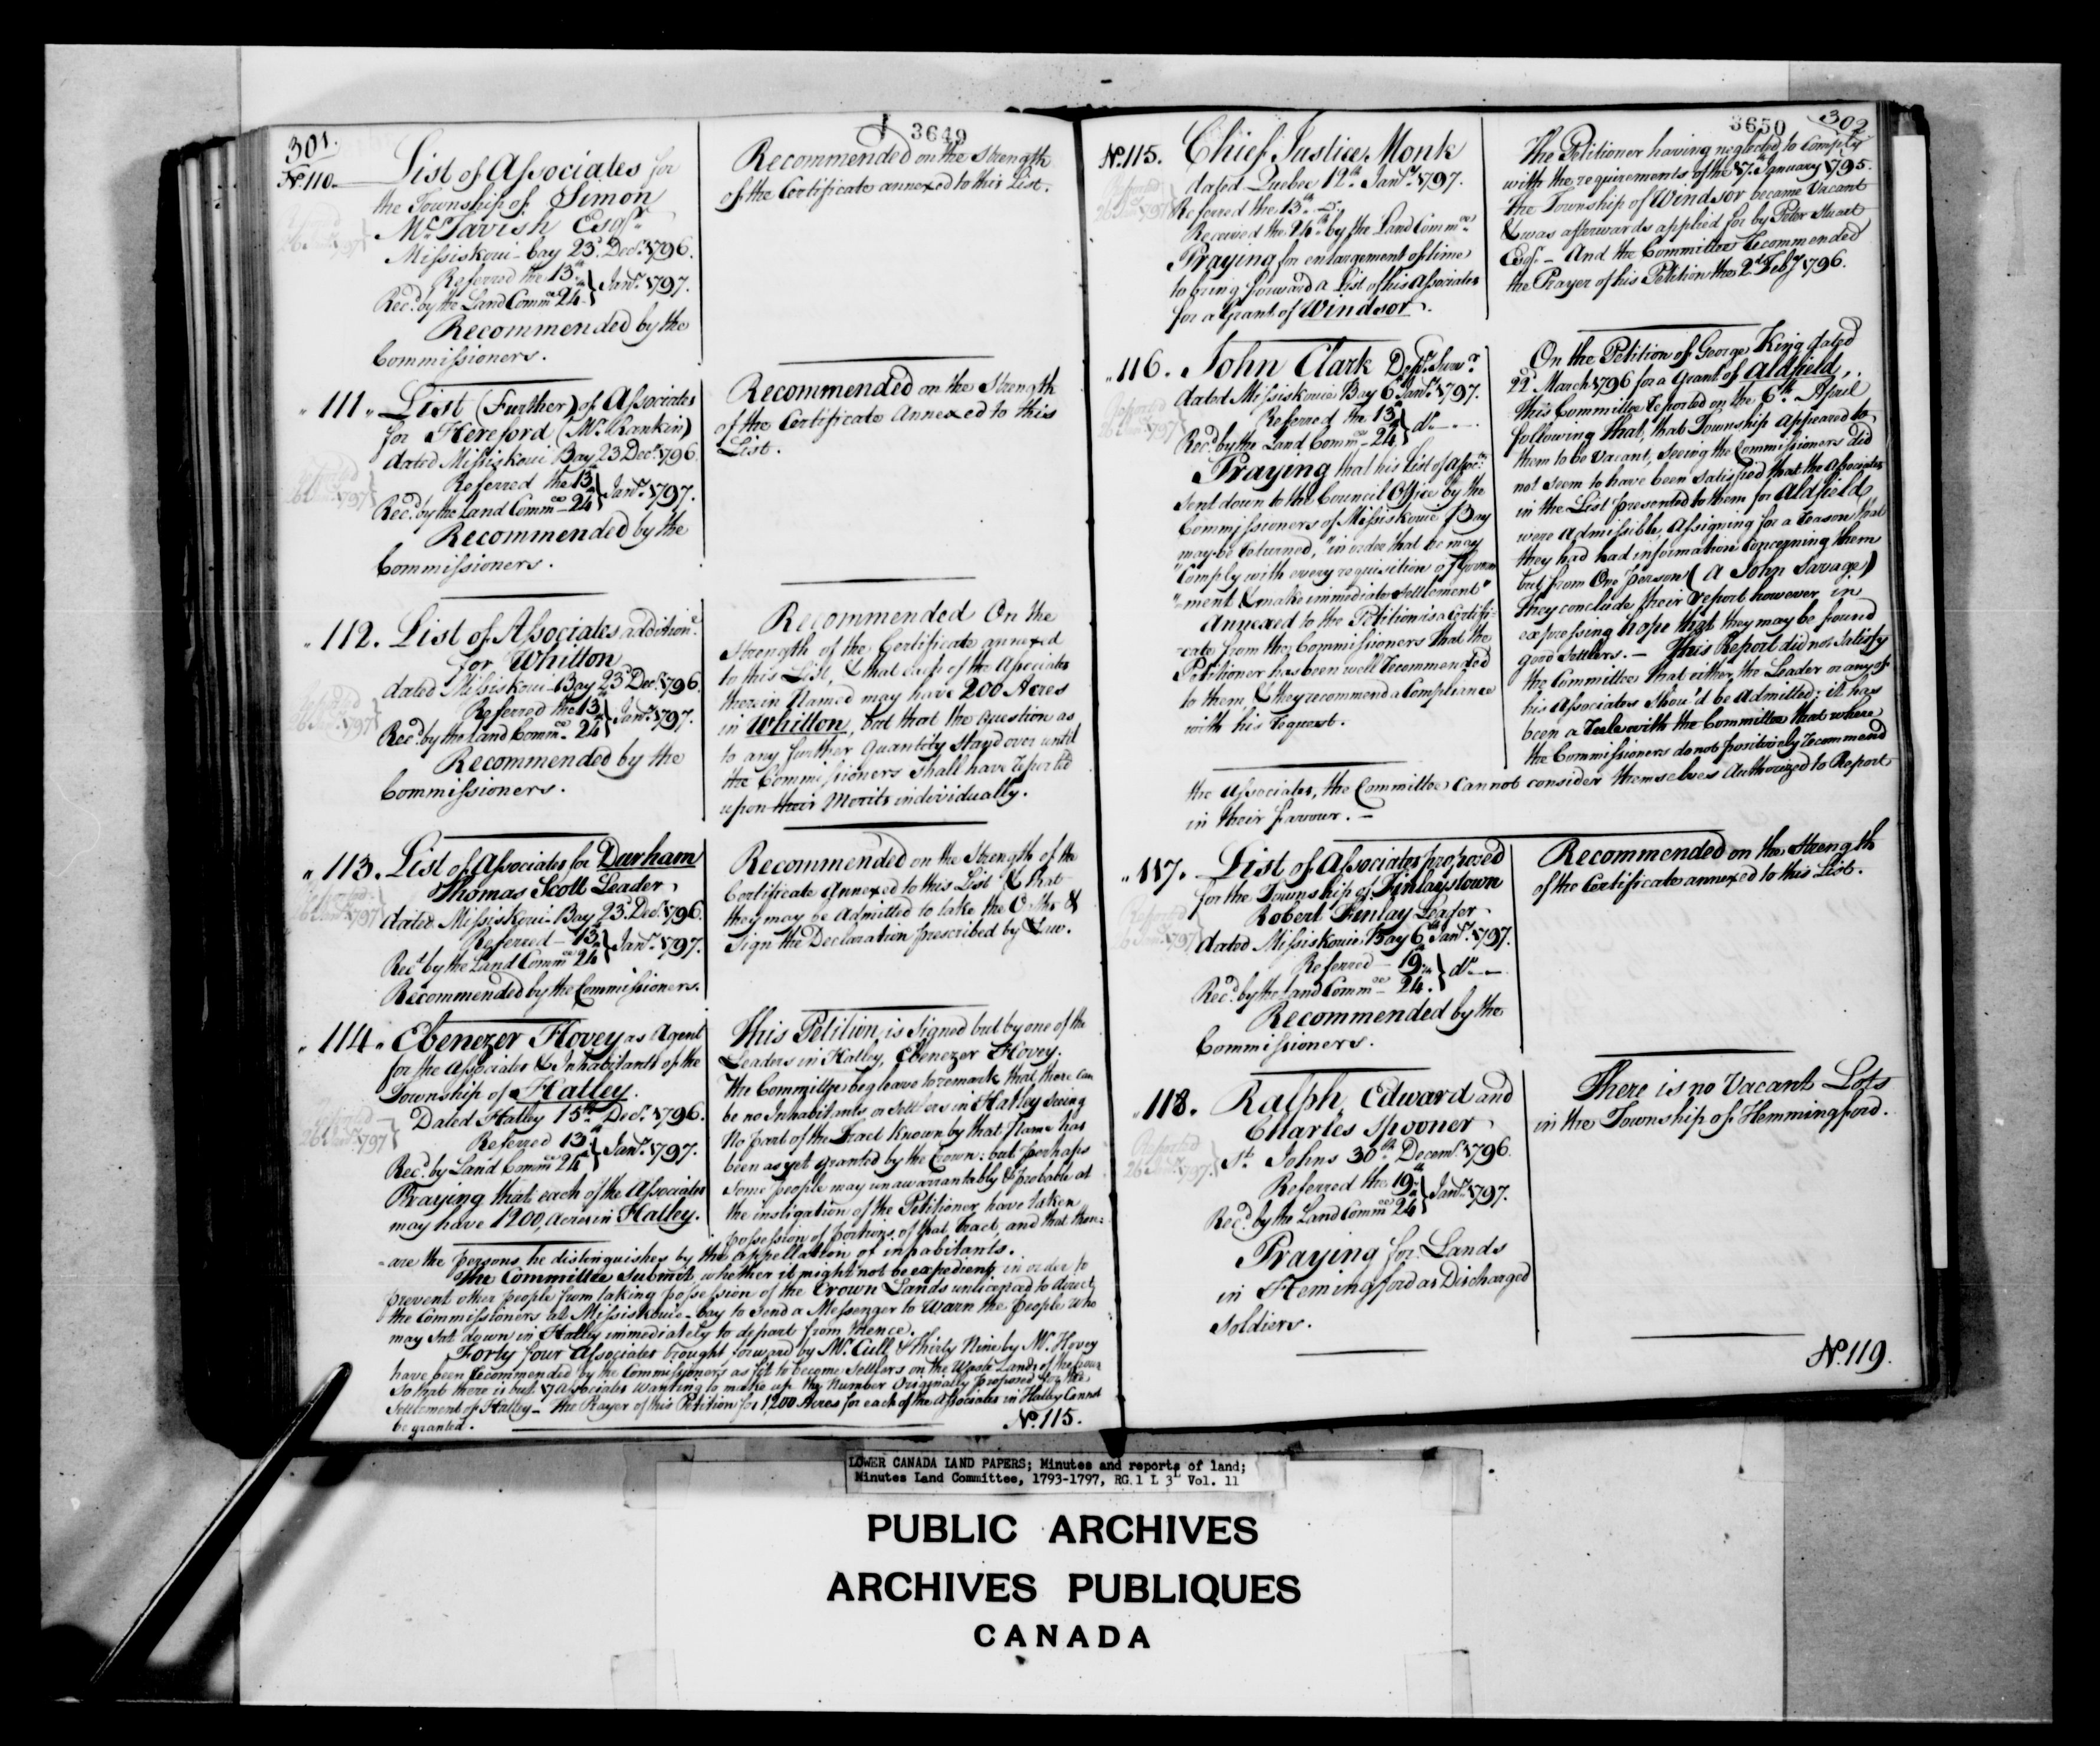 301.
3649
No. 110.
List of Associates for
the Township of Simon
McTavish Esqr.
Missiskoui-bay 23d. Decr. 1796.
Referred the 13th } Janry. 1797.
Recd. by the Land Commee 24
Recommended by the
Commissioners.
Recommended on the Strength
of the Certificate annexed to this List.
" 111 " List (Further) of Associates
for Hereford (Mr. Rankin)
dated Missiskoui Bay 23 Decr. 1796
Referred the 13 } Janry. 1797.
Recd. by the Land Commee 24
Recommended by the
Commissioners.
Recommended on the Strength
of the Certificate Annexed to this
List.
" 112. List of Associates, additionl.
for Whitton
dated Missiskoui-Bay 23 Decr. 1796
Referred the 13 } Janry. 1797.
Recd. by the Land Commee 24
Recommended by the
Commissioners.
Recommended On the
Strength of the Certificate annexed
to this List, & that each of the Associates
therein Named may have 200 Acres
in Whitton, but that the question as
to any further Quantity stand over until
the Commissioners shall have reported
upon their Merits individually.
" 113. List of Associates for Durham
Thomas Scott Leader
dated Missiskoui-Bay 23d. Decr. 1796.
Referred - 13 } Janry. 1797.
Recd. by the Land Commee 24
Recommended by the Commissioners.
Recommended on the Strength of the
Certificate Annexed to this List & that
they may be Admitted to take the Oaths &
Sign the Declaration prescribed by Law.
" 114 " Ebenezer Hovey as Agent
for the Associates & Inhabitants of the
Township of Hatley.
Dated Hatley 15th Decr. 1796.
Referred 13. } Janry. 1797.
Recd. by Land Commee 24
Praying that each of the Associates
may have 1200, Acres in Hatley.
This Petition, is Signed but by one of the
Leaders in Hatley, Ebenezer Hovey.
The Committee beg leave to remark that, there can
be no Inhabitants or Settlers in Hatley Seeing
No part of the Tract known by that Name has
been as yet granted by the Crown: but perhaps
some people may unawarrantably & probable at
the instigation of the Petitioner have taken
possession of portions of that Tract, and that them=
-are the persons he distinguishes by the appellation of inhabitants.
The Committee submit whether it might not be expedient, in order to
prevent other people from taking possession of the Crown Lands unlicensed to direct
the Commissioners at Missiskouie-bay to send a Messenger to Warn the people who
may Sat down in Hatley immediately to depart from thence.
Forty four Associates brought forward by Mr. Cull & thirty Nine by Mr. Hovey
have been recommended by the Commissioners as fit to become Settlers on the Waste Lands of the Crown
So that there is but 7 Associates wanting to make up the Number Originally proposed for the
Settlement of Hatley - The Prayer of this Petition for 1,200 Acres for each of the Associates in Hatley Cannot
be granted.
No. 115.
3650
302
No. 115. Chief Justice Monk
dated Quebec 12th. Janry. 1797.
Referred the 13th Do.
Received the 24th by the Land Commee
Praying for enlargement of time
to bring forward a List of his Associates
for a Grant of Windsor.
The Petitioner having neglected to Comply
with the requirements of the 17. January 1795.
the Township of Windsor became Vacant
& was afterwards applied for by Peter Stuart
Esqr. - And the Committee recommended
the Prayer of his Petition the 2d. Feby. 1796.
" 116. John Clark Depy. Survr.
dated Missiskouie Bay 6 Janry. 1797.
Referred the 13 } do - -
Recd. by the Land Commee 24
Praying that his List of Assocts.
sent down to the Council Office by the
Commissioners of Missiskouie Bay
may be returned, "in order that he may
"Comply with every requisition of Govern
"-ment & make immediate Settlement"
Annexed to the Petition is a Certifi-
-cate from the Commissioners that the
Petitioner has been well recommended
to them, & they recommend a Compliance
with his request.
On the Petition of George King dated
22d. March 1796 for a Grant of Aldfield,
this Committee reported on the 6th. April
following that, that Township appeared to
them to be vacant, seeing the Commissioners did
not seem to have been satisfied that the Associates
in the List presented to them for Aldfield
were Admissible, Assigning for a reason that
they had had information Concerning them
but from One person (A John Savage)
They conclude their report however in
expressing hope that they may be found
good Settlers. - This Report did not Satisfy
the Committee that either the Leader or any of
his Associates Shou'd be Admitted; it has
been a rule with the Committee that where
the Commissioners do not positively recommend
the Associates, the Committee Cannot consider themselves Authorized to Report
in their favour. -
" 117. List of Associates proposed
for the Township of Finlaystown
Robert Finlay Leader
dated Missiskouie Bay 6th Janry. 1797.
Referred - 19 } do - -
Recd. by the Land Commee 24.
Recommended by the
Commissioners.
Recommended on the Strength
of the Certificate annexed to this List.
" 118. Ralph, Edward and
Charles Spooner
St. Johns 30th Decemr. 1796.
Referred the 19 } Janry. 1797.
Recd. by the Land Commee 24
Praying for Lands
in Hemingford as Discharged
Soldiers.
There is no Vacant Lots
in the Township of Hemmingford.
No. 119.
LOWER CANADA LAND PAPERS; Minutes and reports of land;
Minutes Land Committee, 1793-1797, RG 1 L 3L Vol. 11
PUBLIC ARCHIVES
ARCHIVES PUBLIQUES
CANADA